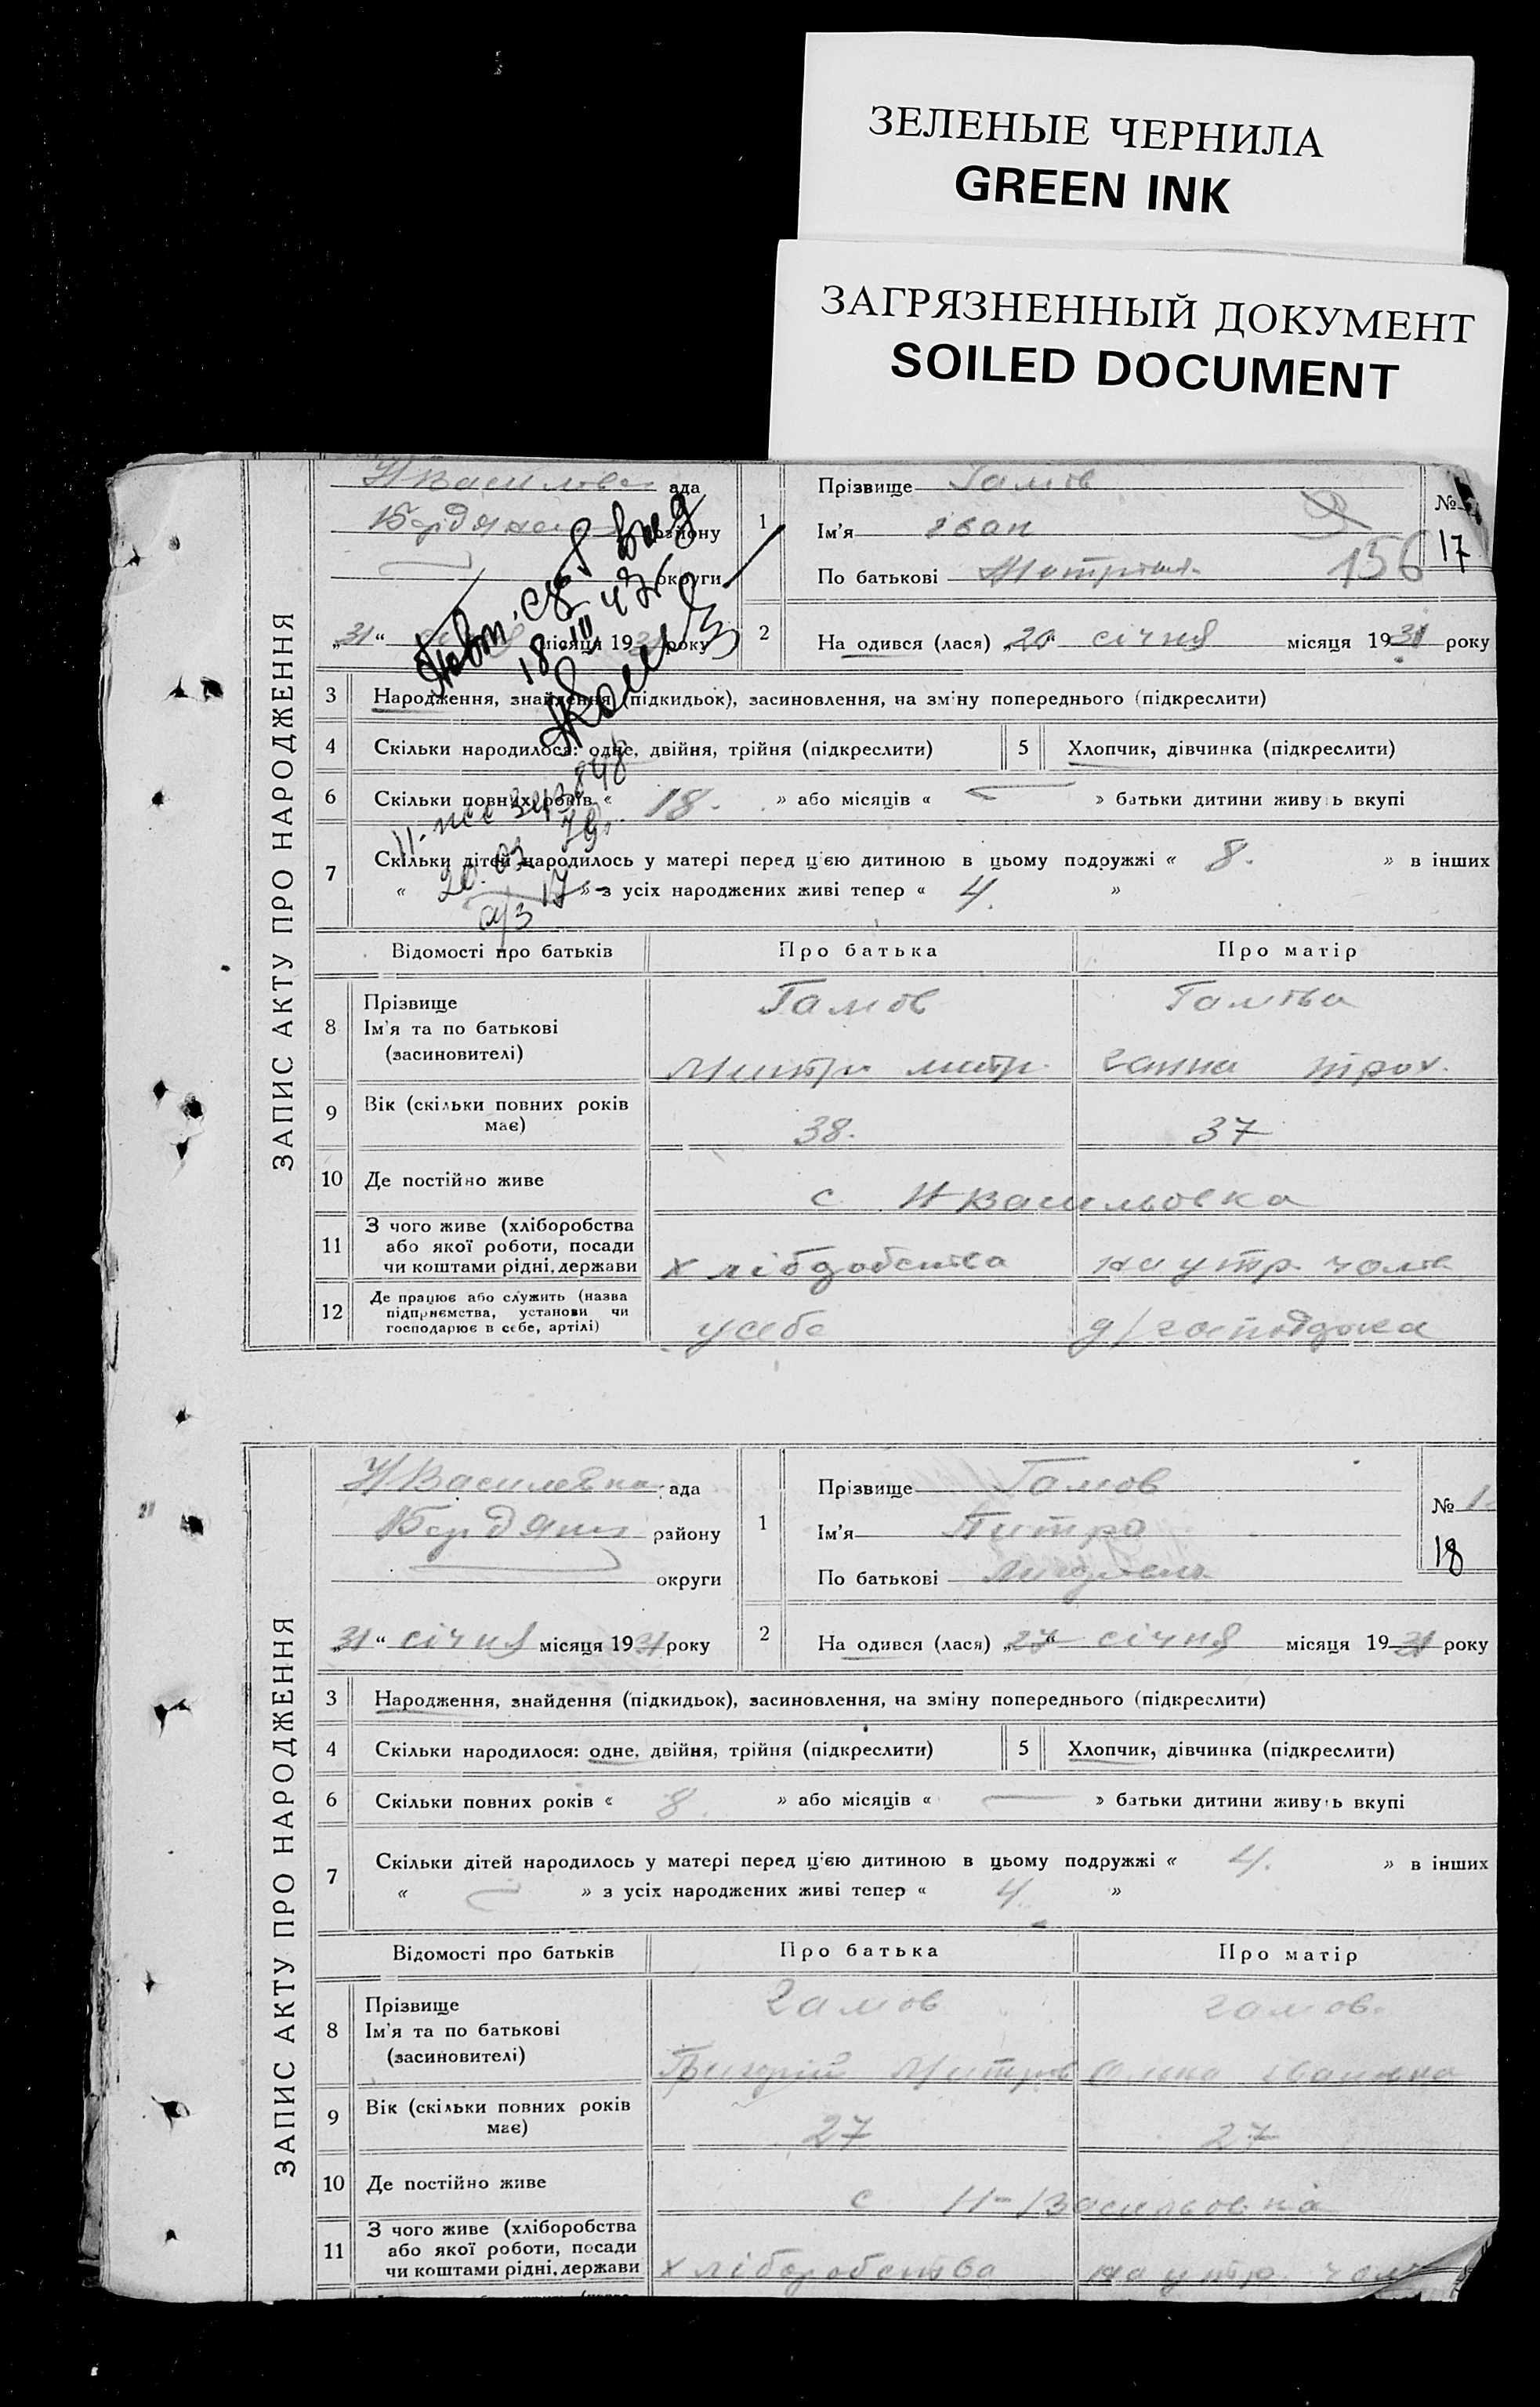 ЗЕЛЕНЫЕ ЧЕРНИЛА
GREEN INK
ЗАГРЯЗНЕННЫЙ ДОКУМЕНТ
SOILED DOCUMENT
ЗАПИС АКТУ ПРО НАРОДЖЕННЯ
ада
району
округи
„31“ місяця 1931 року
18 III
1 Прізвище Гамов
Ім'я іван
По батькові
№
17
156
2 На одився (лася) „20“ січня місяця 1931 року
3 Народження, знайдення (підкидьок), засиновлення, на зміну попереднього (підкреслити)
4 Скільки народилося: одне, двійня, трійня (підкреслити)
5 Хлопчик, дівчинка (підкреслити)
6 Скільки повних років « 18. » або місяців « — » батьки дитини живуть вкупі
7 Скільки дітей народилось у матері перед цією дитиною в цьому подружжі « 8. » в інших
« » з усіх народжених живі тепер « 4. »
20.03
Відомості про батьків Про батька Про матір
8 Прізвище Гамов Гамова
Ім'я та по батькові
(засиновителі) митр. ганна трох.
9 Вік (скільки повних років має) 38. 37
10 Де постійно живе с. Н васильовка
11 З чого живе (хліборобства
або якої роботи, посади
чи коштами рідні, держави на утр. чолов
12 Де працює або служить (назва
підприємства, установи чи
господарює в себе, артілі) у себе
ЗАПИС АКТУ ПРО НАРОДЖЕННЯ
Н Василевка ада
Бердянск району
округи
„31“ січня місяця 1931 року
1 Прізвище Гамов
Ім'я Питро
По батькові
№ 1
18
2 На одився (лася) „27“ січня місяця 1931 року
3 Народження, знайдення (підкидьок), засиновлення, на зміну попереднього (підкреслити)
4 Скільки народилося: одне, двійня, трійня (підкреслити)
5 Хлопчик, дівчинка (підкреслити)
6 Скільки повних років « 8. » або місяців « — » батьки дитини живуть вкупі
7 Скільки дітей народилось у матері перед цією дитиною в цьому подружжі « 4. » в інших
« — » з усіх народжених живі тепер « 4. »
Відомості про батьків Про батька Про матір
8 Прізвище гамов гамов.
Ім'я та по батькові
(засиновителі) Григорій Митров івановна
9 Вік (скільки повних років має) 27 27
10 Де постійно живе с Н-Васильовка
11 З чого живе (хліборобства
або якої роботи, посади
чи коштами рідні, держави хліборобства на утр чол